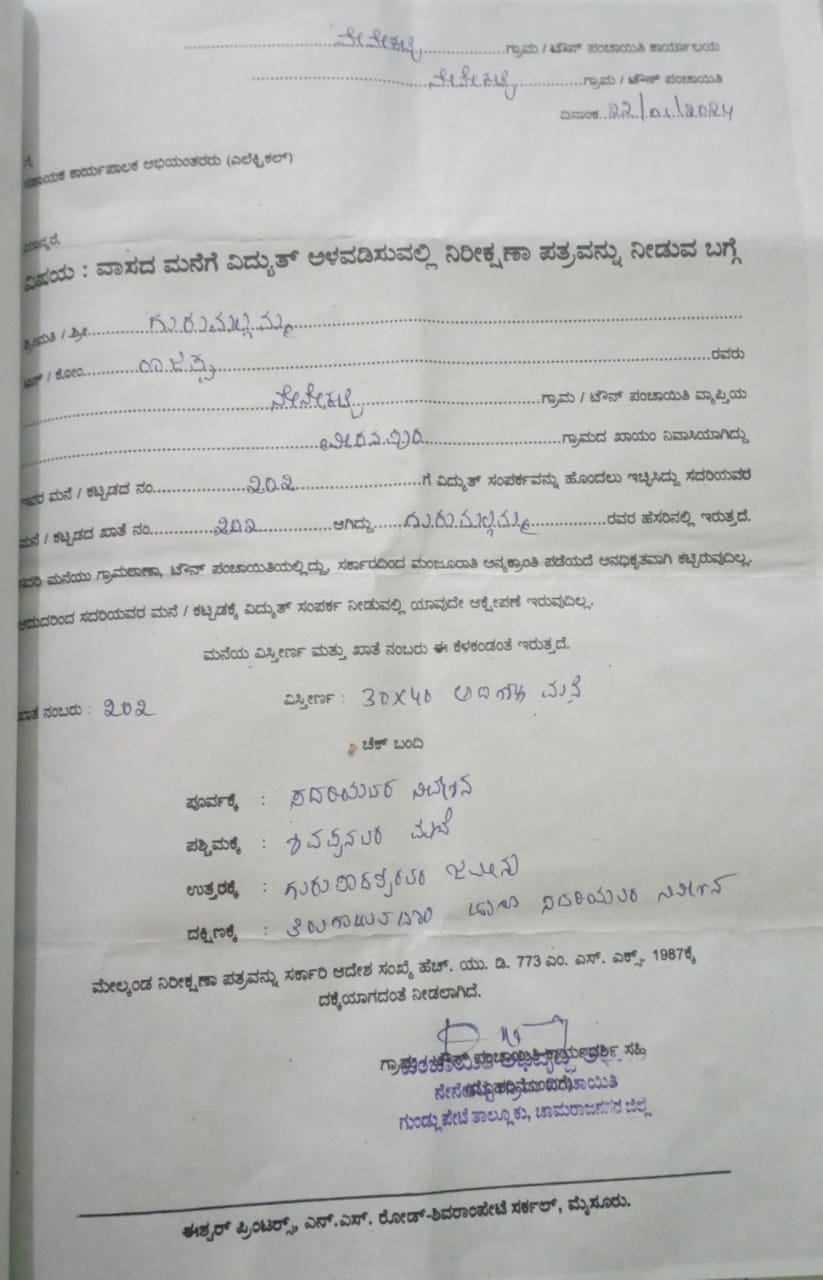 ನೇನೇಕಟ್ಟೆ ಗ್ರಾಮ / ಟೌನ್ ಪಂಚಾಯಿತಿ ಕಾರ್ಯಾಲಯ
ನೇನೇಕಟ್ಟೆ ಗ್ರಾಮ / ಟೌನ್ ಪಂಚಾಯಿತಿ
ದಿನಾಂಕ..22/01/2024
ಗೆ,
ಸಹಾಯಕ ಕಾರ್ಯಪಾಲಕ ಅಭಿಯಂತರರು (ಎಲೆಕ್ಟ್ರಿಕಲ್)
ಮಾನ್ಯರೆ,
ವಿಷಯ : ವಾಸದ ಮನೆಗೆ ವಿದ್ಯುತ್ ಅಳವಡಿಸುವಲ್ಲಿ ನಿರೀಕ್ಷಣಾ ಪತ್ರವನ್ನು ನೀಡುವ ಬಗ್ಗೆ
ಶ್ರೀಮತಿ / ಶ್ರೀ ಗುರುಮಲ್ಲಮ್ಮ
ಬಿನ್ / ಕೋಂ ರಾಜಪ್ಪ ರವರು
ನೇನೇಕಟ್ಟೆ ಗ್ರಾಮ / ಟೌನ್ ಪಂಚಾಯಿತಿ ವ್ಯಾಪ್ತಿಯ
ವೀರನಪುರ ಗ್ರಾಮದ ಖಾಯಂ ನಿವಾಸಿಯಾಗಿದ್ದು
ಇವರ ಮನೆ / ಕಟ್ಟಡದ ನಂ. ೨೦೨ ಗೆ ವಿದ್ಯುತ್ ಸಂಪರ್ಕವನ್ನು ಹೊಂದಲು ಇಚ್ಛಿಸಿದ್ದು ಸದರಿಯವರ
ಮನೆ / ಕಟ್ಟಡದ ಖಾತೆ ನಂ. ೨೦೨ ಆಗಿದ್ದು ಗುರುಮಲ್ಲಮ್ಮ ರವರ ಹೆಸರಿನಲ್ಲಿ ಇರುತ್ತದೆ.
ಸದರಿ ಮನೆಯು ಗ್ರಾಮಠಾಣಾ, ಟೌನ್ ಪಂಚಾಯಿತಿಯಲ್ಲಿದ್ದು, ಸರ್ಕಾರದಿಂದ ಮಂಜೂರಾತಿ ಅನ್ಯಕ್ರಾಂತಿ ಪಡೆಯದೆ ಅನಧಿಕೃತವಾಗಿ ಕಟ್ಟಿರುವುದಿಲ್ಲ.
ಆದುದರಿಂದ ಸದರಿಯವರ ಮನೆ / ಕಟ್ಟಡಕ್ಕೆ ವಿದ್ಯುತ್ ಸಂಪರ್ಕ ನೀಡುವಲ್ಲಿ ಯಾವುದೇ ಆಕ್ಷೇಪಣೆ ಇರುವುದಿಲ್ಲ.
ಮನೆಯ ವಿಸ್ತೀರ್ಣ ಮತ್ತು ಖಾತೆ ನಂಬರು ಈ ಕೆಳಕಂಡಂತೆ ಇರುತ್ತದೆ.
ಖಾತೆ ನಂಬರು : ೨೦೨ ವಿಸ್ತೀರ್ಣ : 30x40 ಅಡಿಗಳ ಮನೆ
ಚೆಕ್ ಬಂದಿ
ಪೂರ್ವಕ್ಕೆ : ಸದರಿಯವರ ನಿವೇಶನ
ಪಶ್ಚಿಮಕ್ಕೆ : ಶಿವಪ್ಪನವರ ಮನೆ
ಉತ್ತರಕ್ಕೆ : ಜಮೀನು
ದಕ್ಷಿಣಕ್ಕೆ :
ಮೇಲ್ಕಂಡ ನಿರೀಕ್ಷಣಾ ಪತ್ರವನ್ನು ಸರ್ಕಾರಿ ಆದೇಶ ಸಂಖ್ಯೆ ಹೆಚ್. ಯು. ಡಿ. 773 ಎಂ. ಎಸ್. ಎಕ್ಸ್. 1987ಕ್ಕೆ
ದಕ್ಕೆಯಾಗದಂತೆ ನೀಡಲಾಗಿದೆ.
ಗ್ರಾಮ / ಟೌನ್ ಪಂಚಾಯಿತಿ ಕಾರ್ಯದರ್ಶಿ ಸಹಿ
(ಮೊಹರಿನೊಂದಿಗೆ)
ಗುಂಡ್ಲುಪೇಟೆ ತಾಲ್ಲೂಕು, ಚಾಮರಾಜನಗರ ಜಿಲ್ಲೆ
ಈಶ್ವರ್ ಪ್ರಿಂಟರ್ಸ್, ಎನ್.ಎಸ್. ರೋಡ್-ಶಿವರಾಂಪೇಟೆ ಸರ್ಕಲ್, ಮೈಸೂರು.